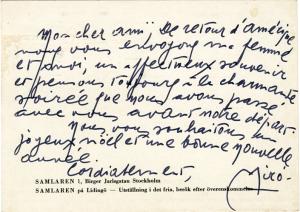 Mon cher ami, De retour d'Amérique
nous vous envoyons ma femme
et moi, un affectueux souvenir
et pensons toujours à la charmante
soirée que nous avons passé
avec vous avant notre départ.
Nous vous souhaitons un
joyeux noël et une bonne nouvelle
année.
Cordialement,
Miró.
SAMLAREN 1, Birger Jarlsgatan Stockholm
SAMLAREN på Lidingö — Utställning i det fria, besök efter överenskommelse